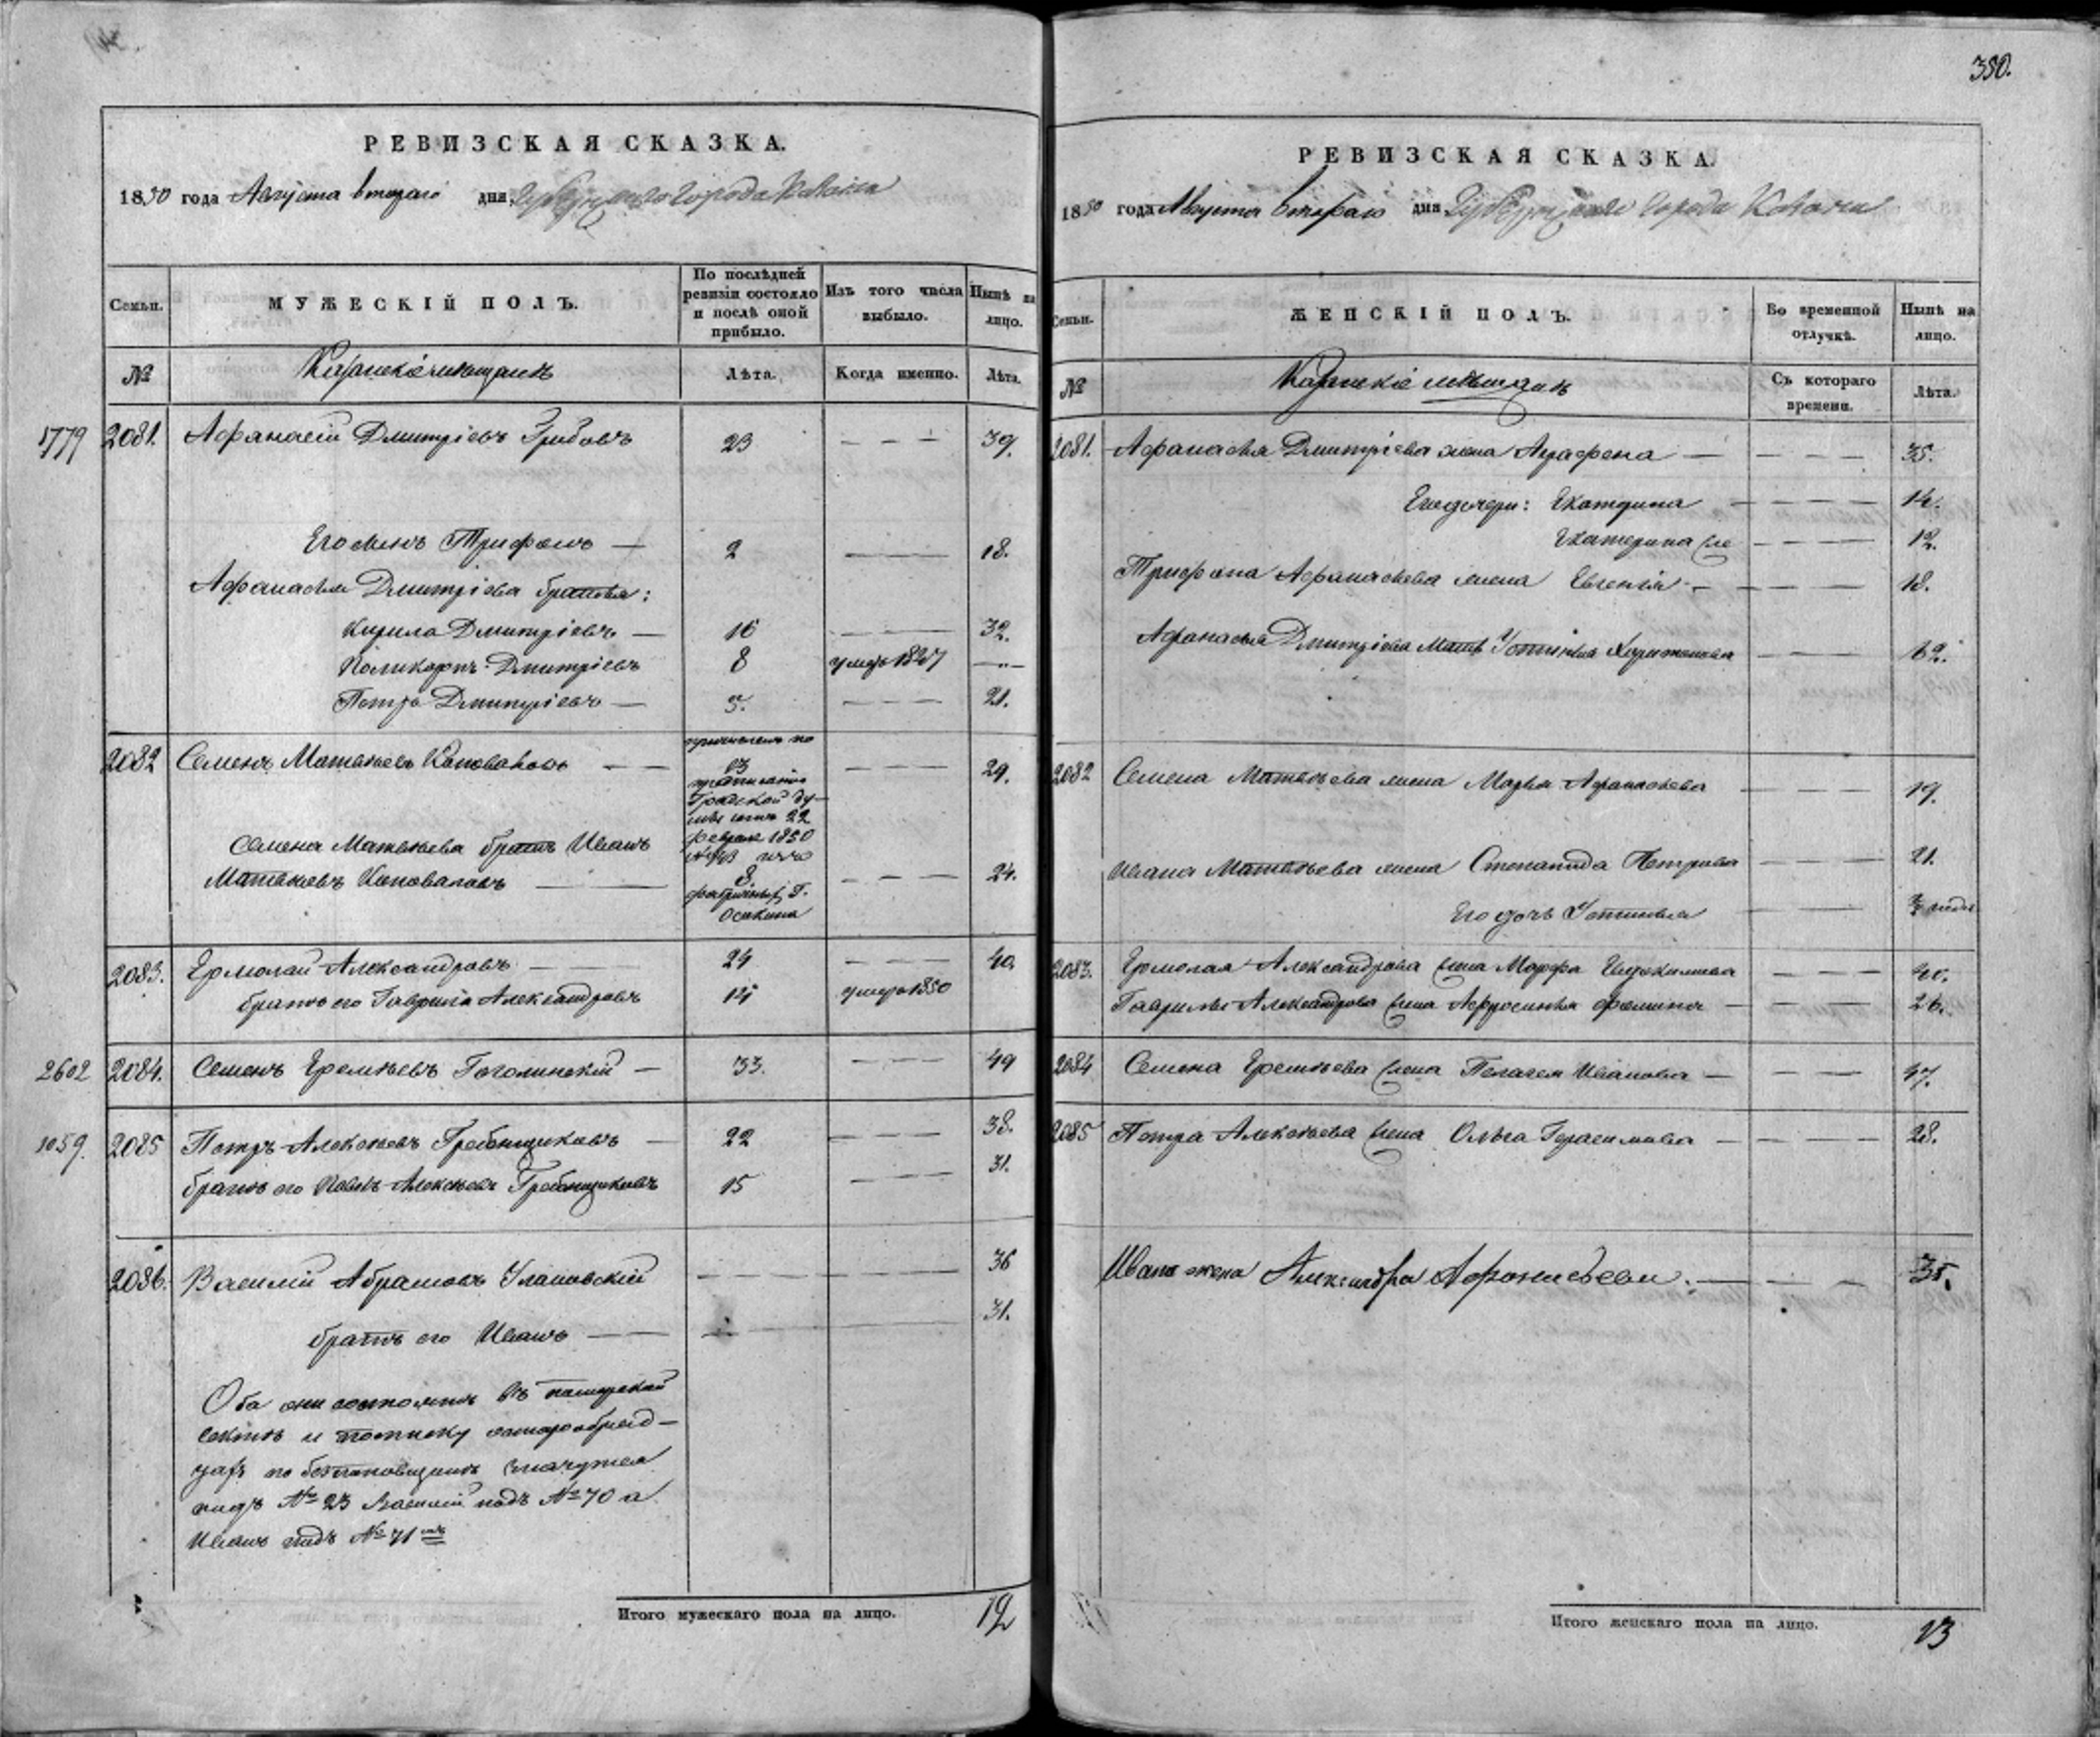 380.
РЕВИЗСКАЯ СКАЗКА.
1850 года Августа втораго дня Губернскаго города Казани
Семьи.
МУЖЕСКІЙ ПОЛЪ.
По послѣдней ревизіи состояло и послѣ оной прибыло.
Изъ того числа выбыло.
Нынѣ на лицо.
№
Казанскіе мещане
Лѣта.
Когда именно.
Лѣта.
1779 2081. Афанасій Дмитріевъ Грибовъ 23 — — — 39.
Его сынъ Трифонъ — 2 — — — 18.
Афанасья Дмитріева братья:
Кирила Дмитріевъ — 16 — — — 32.
Поликарпъ Дмитріевъ 8 умеръ 1847 — „ —
Петръ Дмитріевъ — 5. — — — 21.
2082 Семенъ Матвѣевъ Коноваловъ — — 13 — — — 29.
причислены по
Градской Ду-
мы отъ 22
февраля 1850
Семена Матвѣева братъ Иванъ
Матвѣевъ Коноваловъ — — 8 — — — 24.
Осокина
2083. Ермолай Александровъ — — 24 — — — 40.
братъ его Гаврила Александровъ 14 умеръ 1850
2602 2084. Семенъ Еремѣевъ Гоголинскій — 33. — — — 49
1059. 2085 Петръ Алексѣевъ Гребенщиковъ — 22 — — — 38.
братъ его Павелъ Алексѣевъ Гребенщиковъ 15 — — — 31.
2086. Василій Абрамовъ Улановскій — — — — — — 36
братъ его Иванъ — — — — — 31.
Оба они состоятъ въ поморской
сектѣ и по списку старообряд-
цахъ по безпоповщинѣ значутся
подъ № 23 Василій подъ № 70 а
Иванъ подъ № 71мъ
Итого мужескаго пола на лицо. 12
РЕВИЗСКАЯ СКАЗКА.
1850 года Августа втораго дня Губернскаго города Казани
Семьи.
ЖЕНСКІЙ ПОЛЪ.
Во временной отлучкѣ.
Нынѣ на лицо.
№
Казанскіе мещане
Съ котораго времени.
Лѣта.
2081. Афанасья Дмитріева жена Аграфена — — — — 35.
Его дочери: Екатерина — — — — 14.
Екатерина — — — 12.
Трифона Афанасьева жена Евгенія — — — — 18.
Афанасья Дмитріева мать Устинья Харитонова — — — 62.
2082 Семена Матвѣева жена Марья Афанасьева — — — 19.
Ивана Матвѣева жена Степанида Петрова — — — 21.
Его дочь Устинья — — —
2083. Ермолая Александрова жена Марфа — — — 40.
Гаврилы Александрова жена Афросинья Фомина — — — 26.
2084 Семена Еремѣева жена Пелагея Иванова — — — — 47.
2085 Петра Алексѣева жена Ольга Герасимова — — — — 28.
Ивана жена Александра Афонасьева. — — — 35.
Итого женскаго пола на лицо. 13